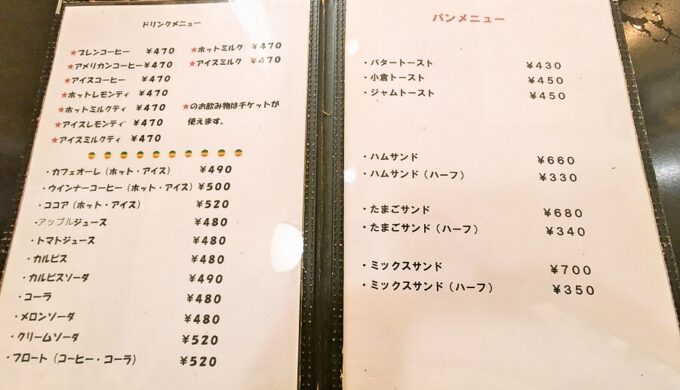 ドリンクメニュー
★ブレンコーヒー ¥470 ★ホットミルク ¥470
★アメリカンコーヒー ¥470 ★アイスミルク ¥470
★アイスコーヒー ¥470
★ホットレモンティ ¥470
★ホットミルクティ ¥470 ★のお飲み物はチケットが
★アイスレモンティ ¥470 使えます。
★アイスミルクティ ¥470
・カフェオーレ（ホット・アイス） ¥490
・ウインナーコーヒー（ホット・アイス） ¥500
・ココア（ホット・アイス） ¥520
・アップルジュース ¥480
・トマトジュース ¥480
・カルピス ¥480
・カルピスソーダ ¥490
・コーラ ¥480
・メロンソーダ ¥480
・クリームソーダ ¥520
・フロート（コーヒー・コーラ） ¥520
パンメニュー
・バタートースト ¥430
・小倉トースト ¥450
・ジャムトースト ¥450
・ハムサンド ¥660
・ハムサンド（ハーフ） ¥330
・たまごサンド ¥680
・たまごサンド（ハーフ） ¥340
・ミックスサンド ¥700
・ミックスサンド（ハーフ） ¥350